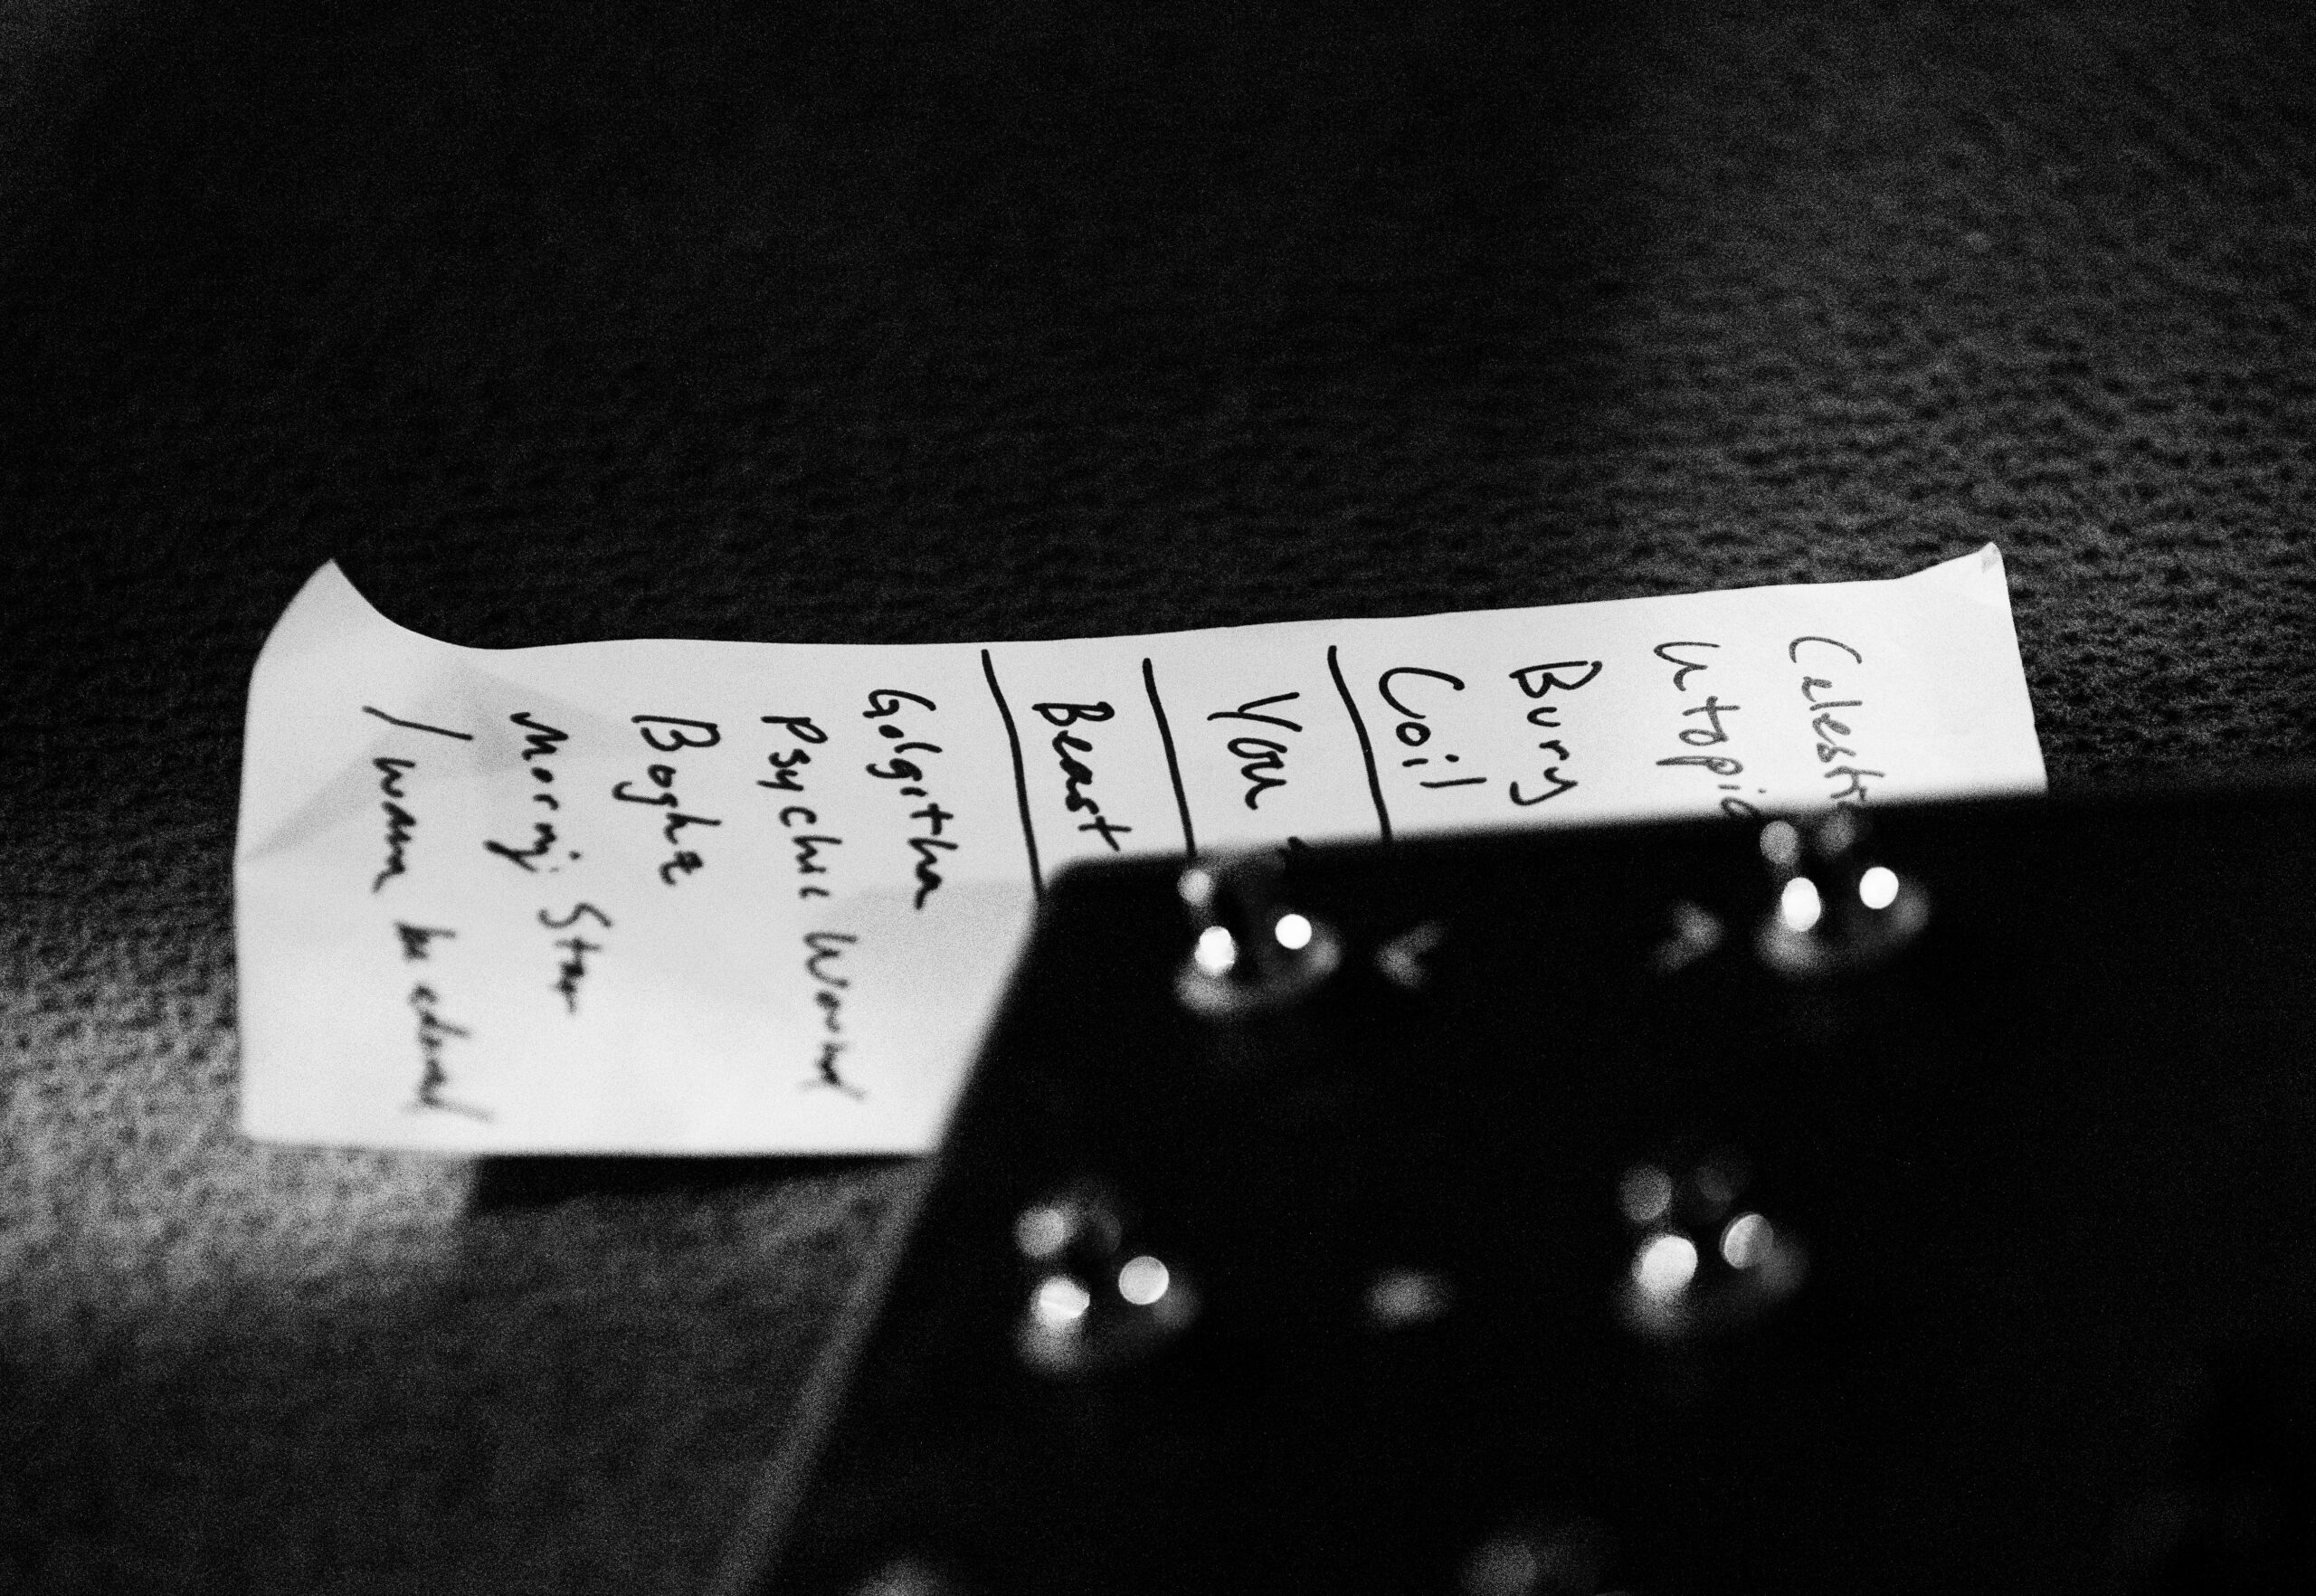 Celesti
Utopia
Bury
Coil
You
Beast
Golgotha
Psychic Wound
Boghz
Morning Star
I wanna be adored